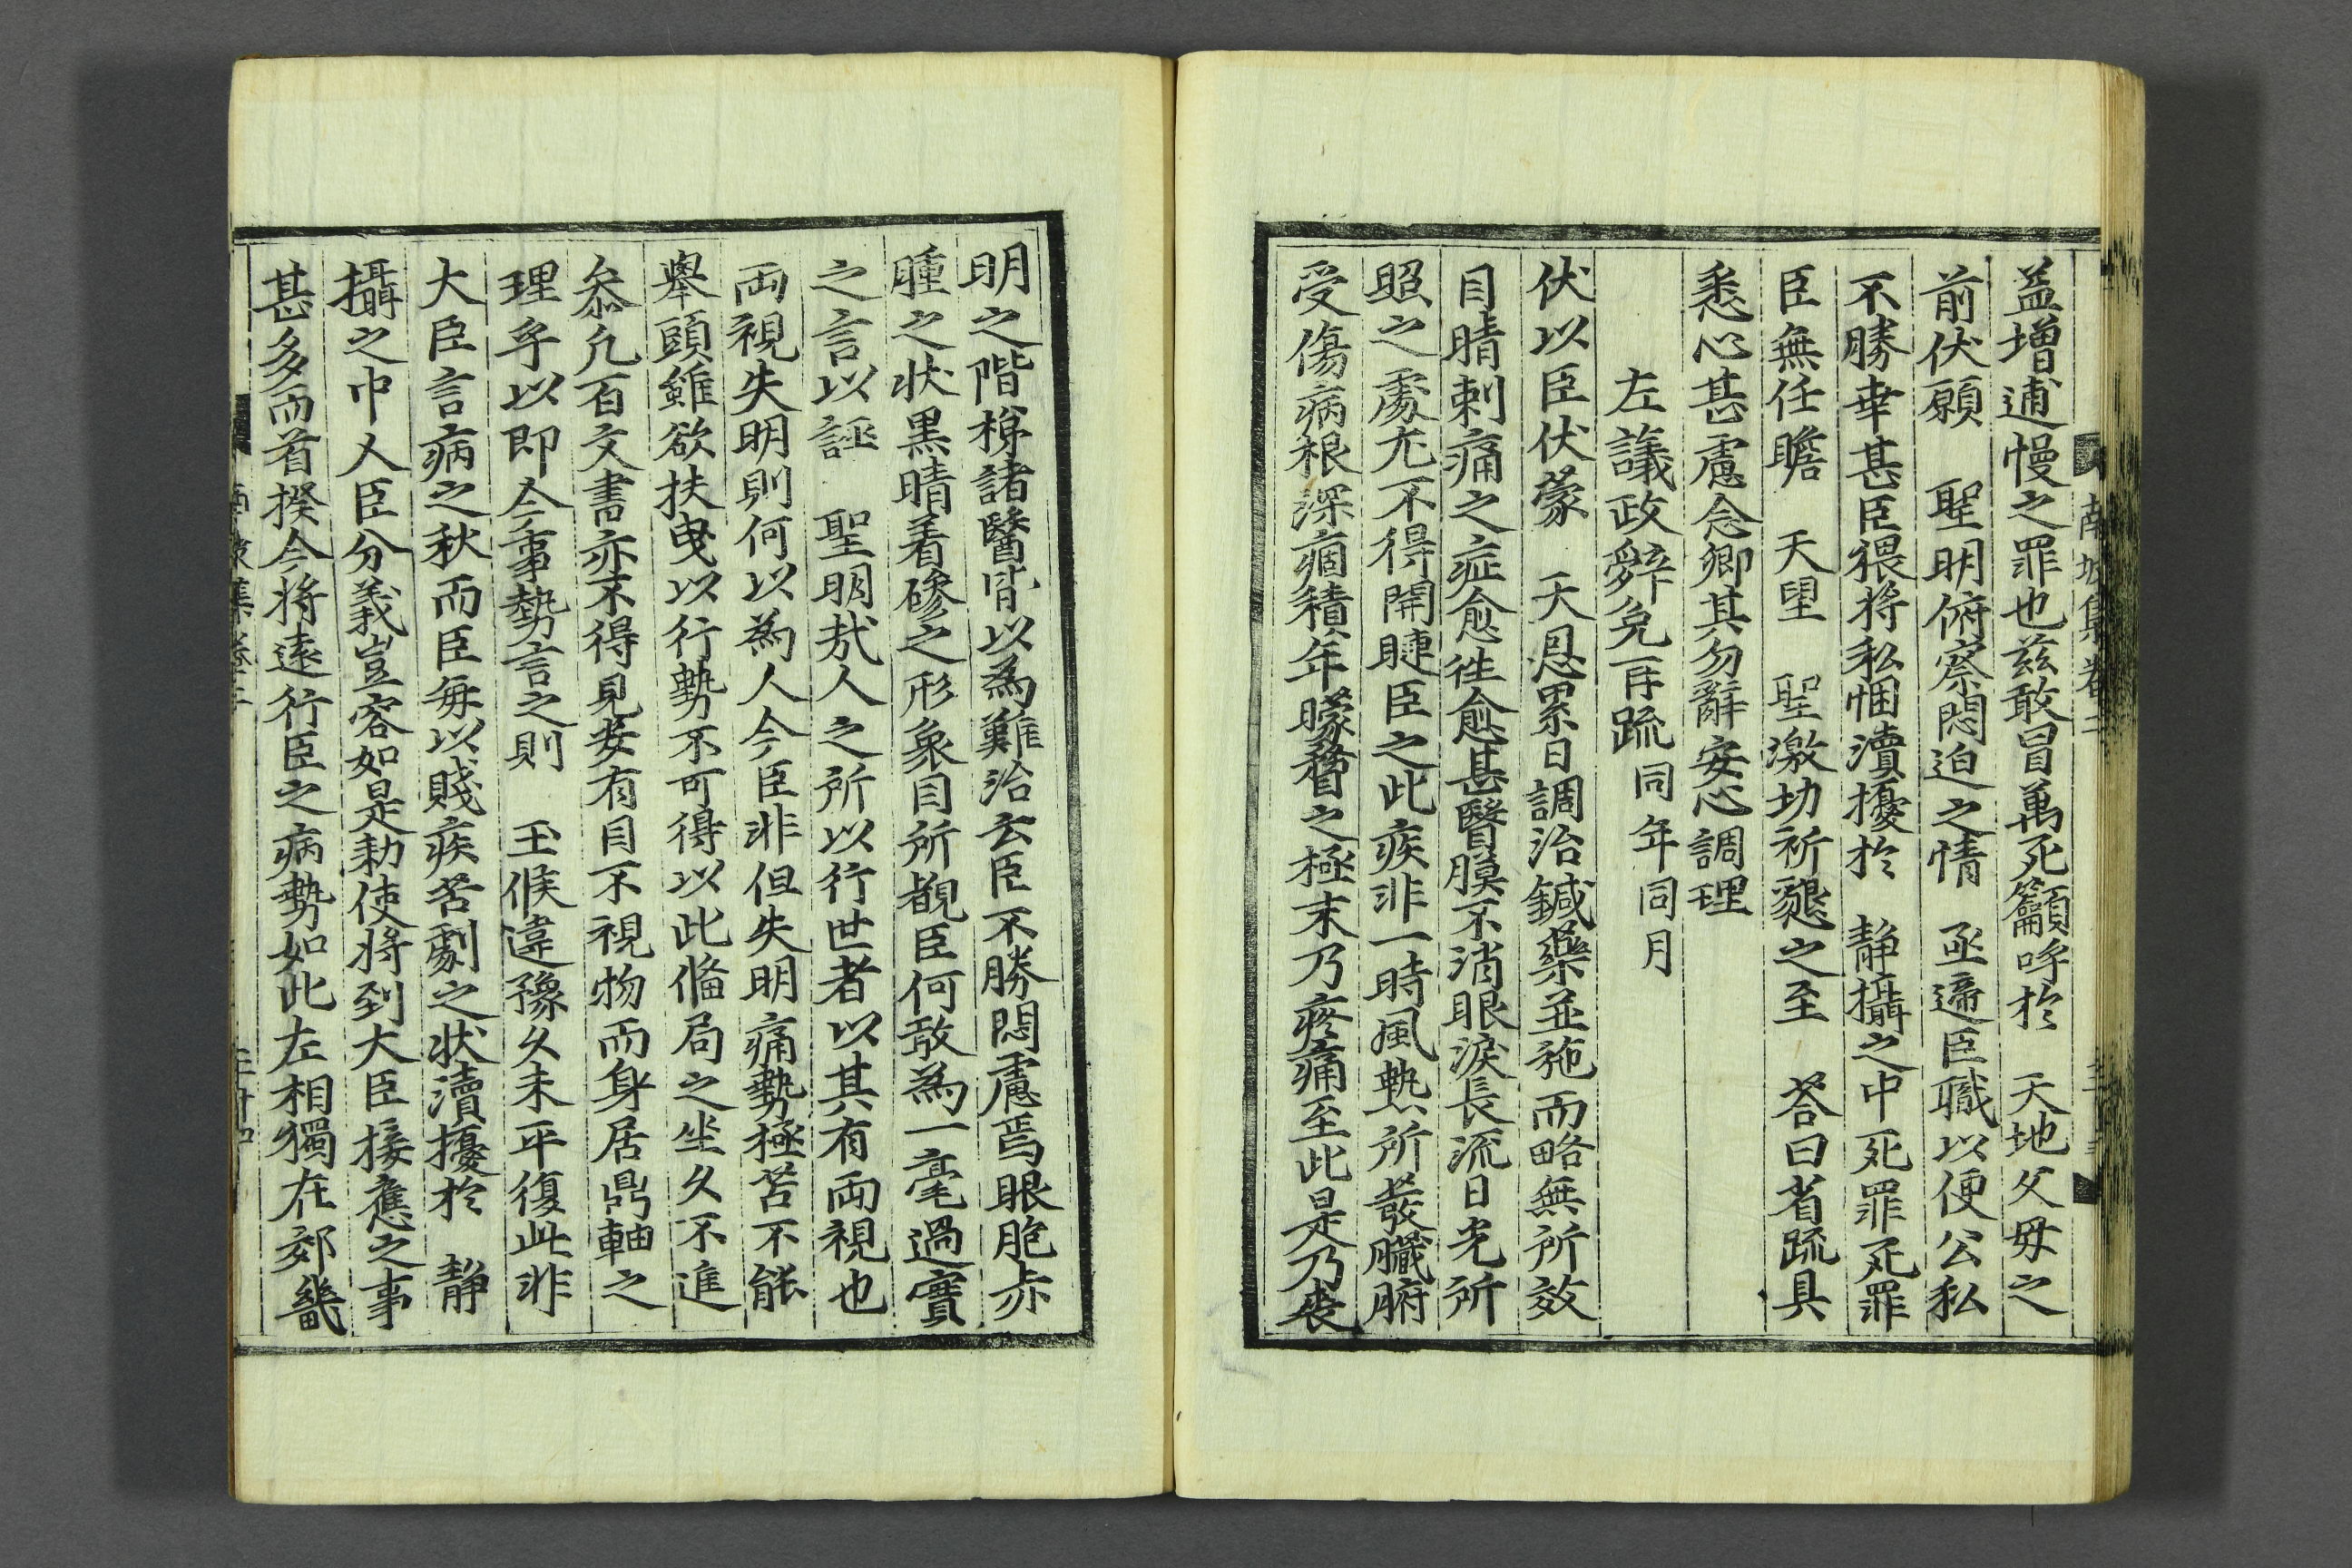 益增逋慢之罪也玆敢冒萬死籲呼於 天地父母之
前伏願 聖明俯察悶迫之情 亟遞臣職以便公私
不勝幸甚臣猥將私悃瀆擾於 靜攝之中死罪死罪
臣無任瞻 天望 聖激切祈懇之至 答曰省疏具
悉心甚慮念卿其勿辭安心調理
左議政辭免再疏同年同月
伏以臣伏蒙 天恩累日調治鍼藥並施而略無所效
目睛刺痛之症愈徃愈甚醫膜不消眼淚長流日光所
照之處尤不得開睫臣之此疾非一時風熱所發臟腑
受傷病根深痼積年矇瞀之極末乃疼痛至此是乃喪
明之階梯諸醫皆以為難治云臣不勝悶慮焉眼胞赤
腫之狀黑睛着磣之形象目所覩臣何敢為一毫過實
之言以誣 聖明哉人之所以行世者以其有兩視也
兩視失明則何以為人今臣非但失明痛勢極苦不能
擧頭雖欲扶曳以行勢不可得以此備局之坐久不進
叅凡百文書亦不得見妄有目不視物而身居鼎軸之
理乎以即今事勢言之則 玉候違豫久未平復此非
大臣言病之秋而臣每以賤疾苦劇之狀瀆擾於 靜
攝之中人臣分義豈容如是勑使將到大臣接應之事
甚多而首揆今將遠行臣之病勢如此左相獨在郊畿
南坡集卷二